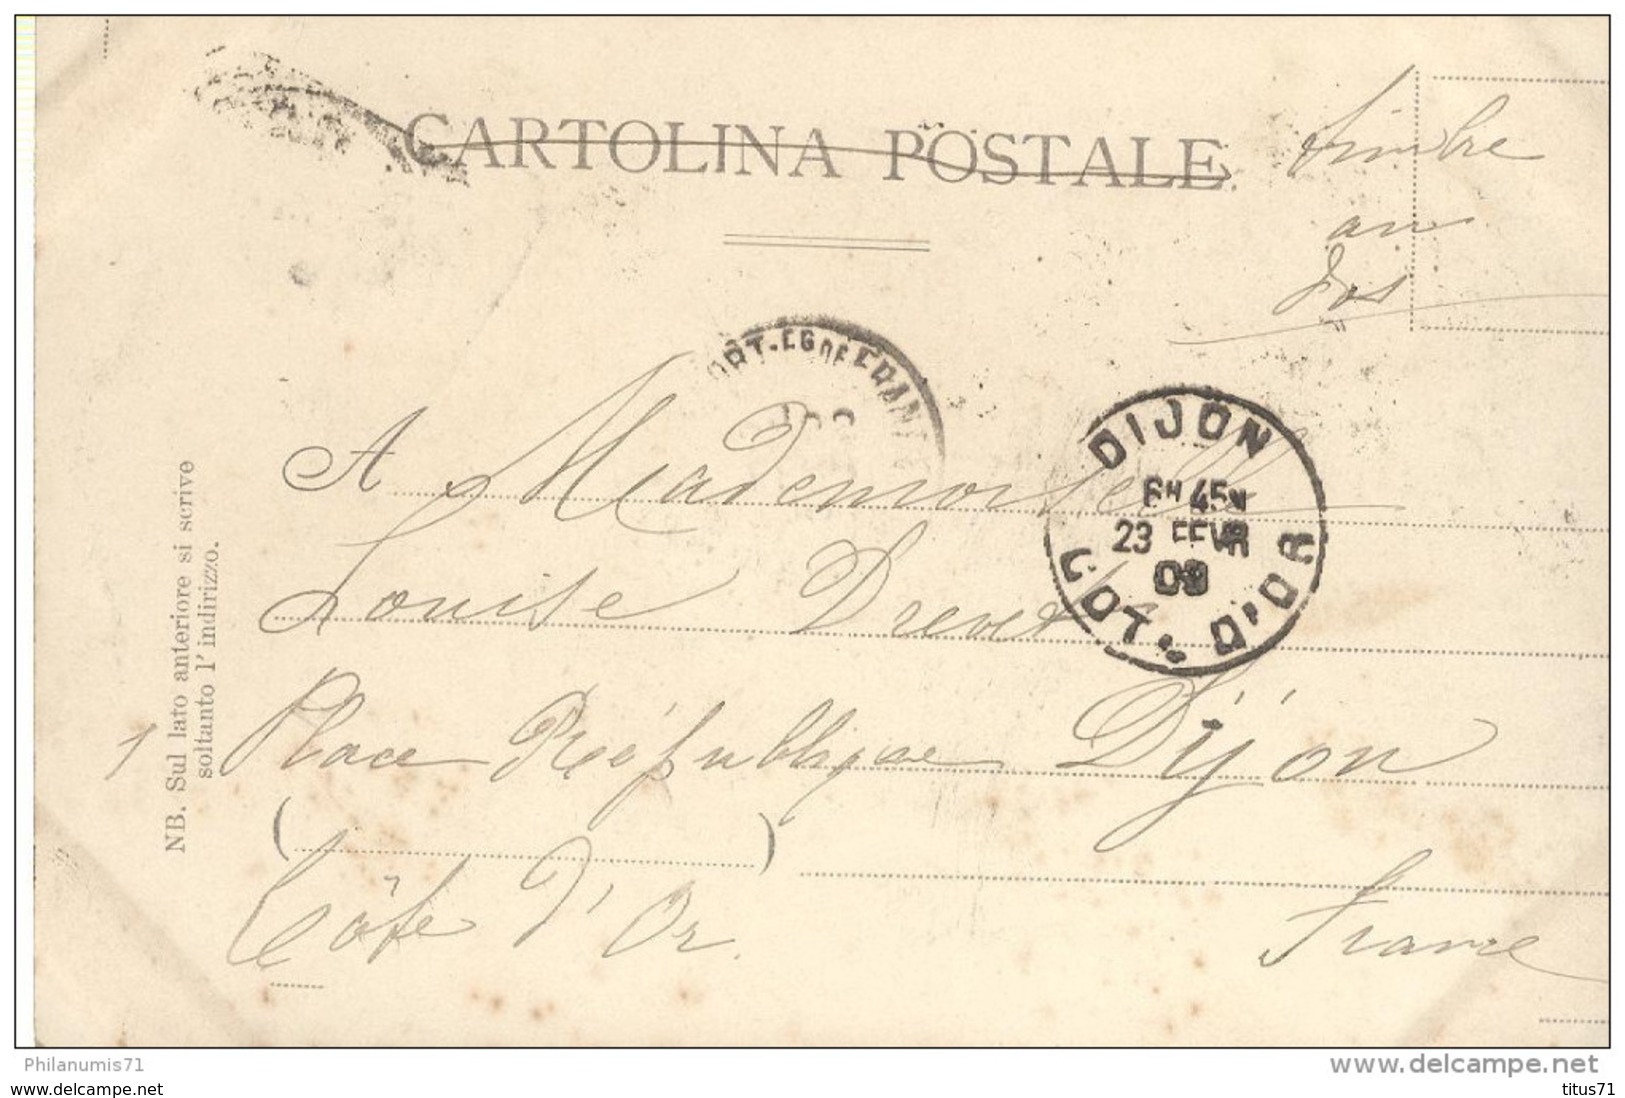 CARTOLINA POSTALE
timbre
au
dos
ORT-EG DE FRANC
DIJON
6H 45M
23 FEVR
09
COTE D'OR
A Mademoiselle
Louise Drevet
1 Place République Dijon
( )
Côte d'Or.
France
NB. Sul lato anteriore si scrive
soltanto l'indirizzo.
Philanumis71
www.delcampe.net
www.delcampe.net
titus71